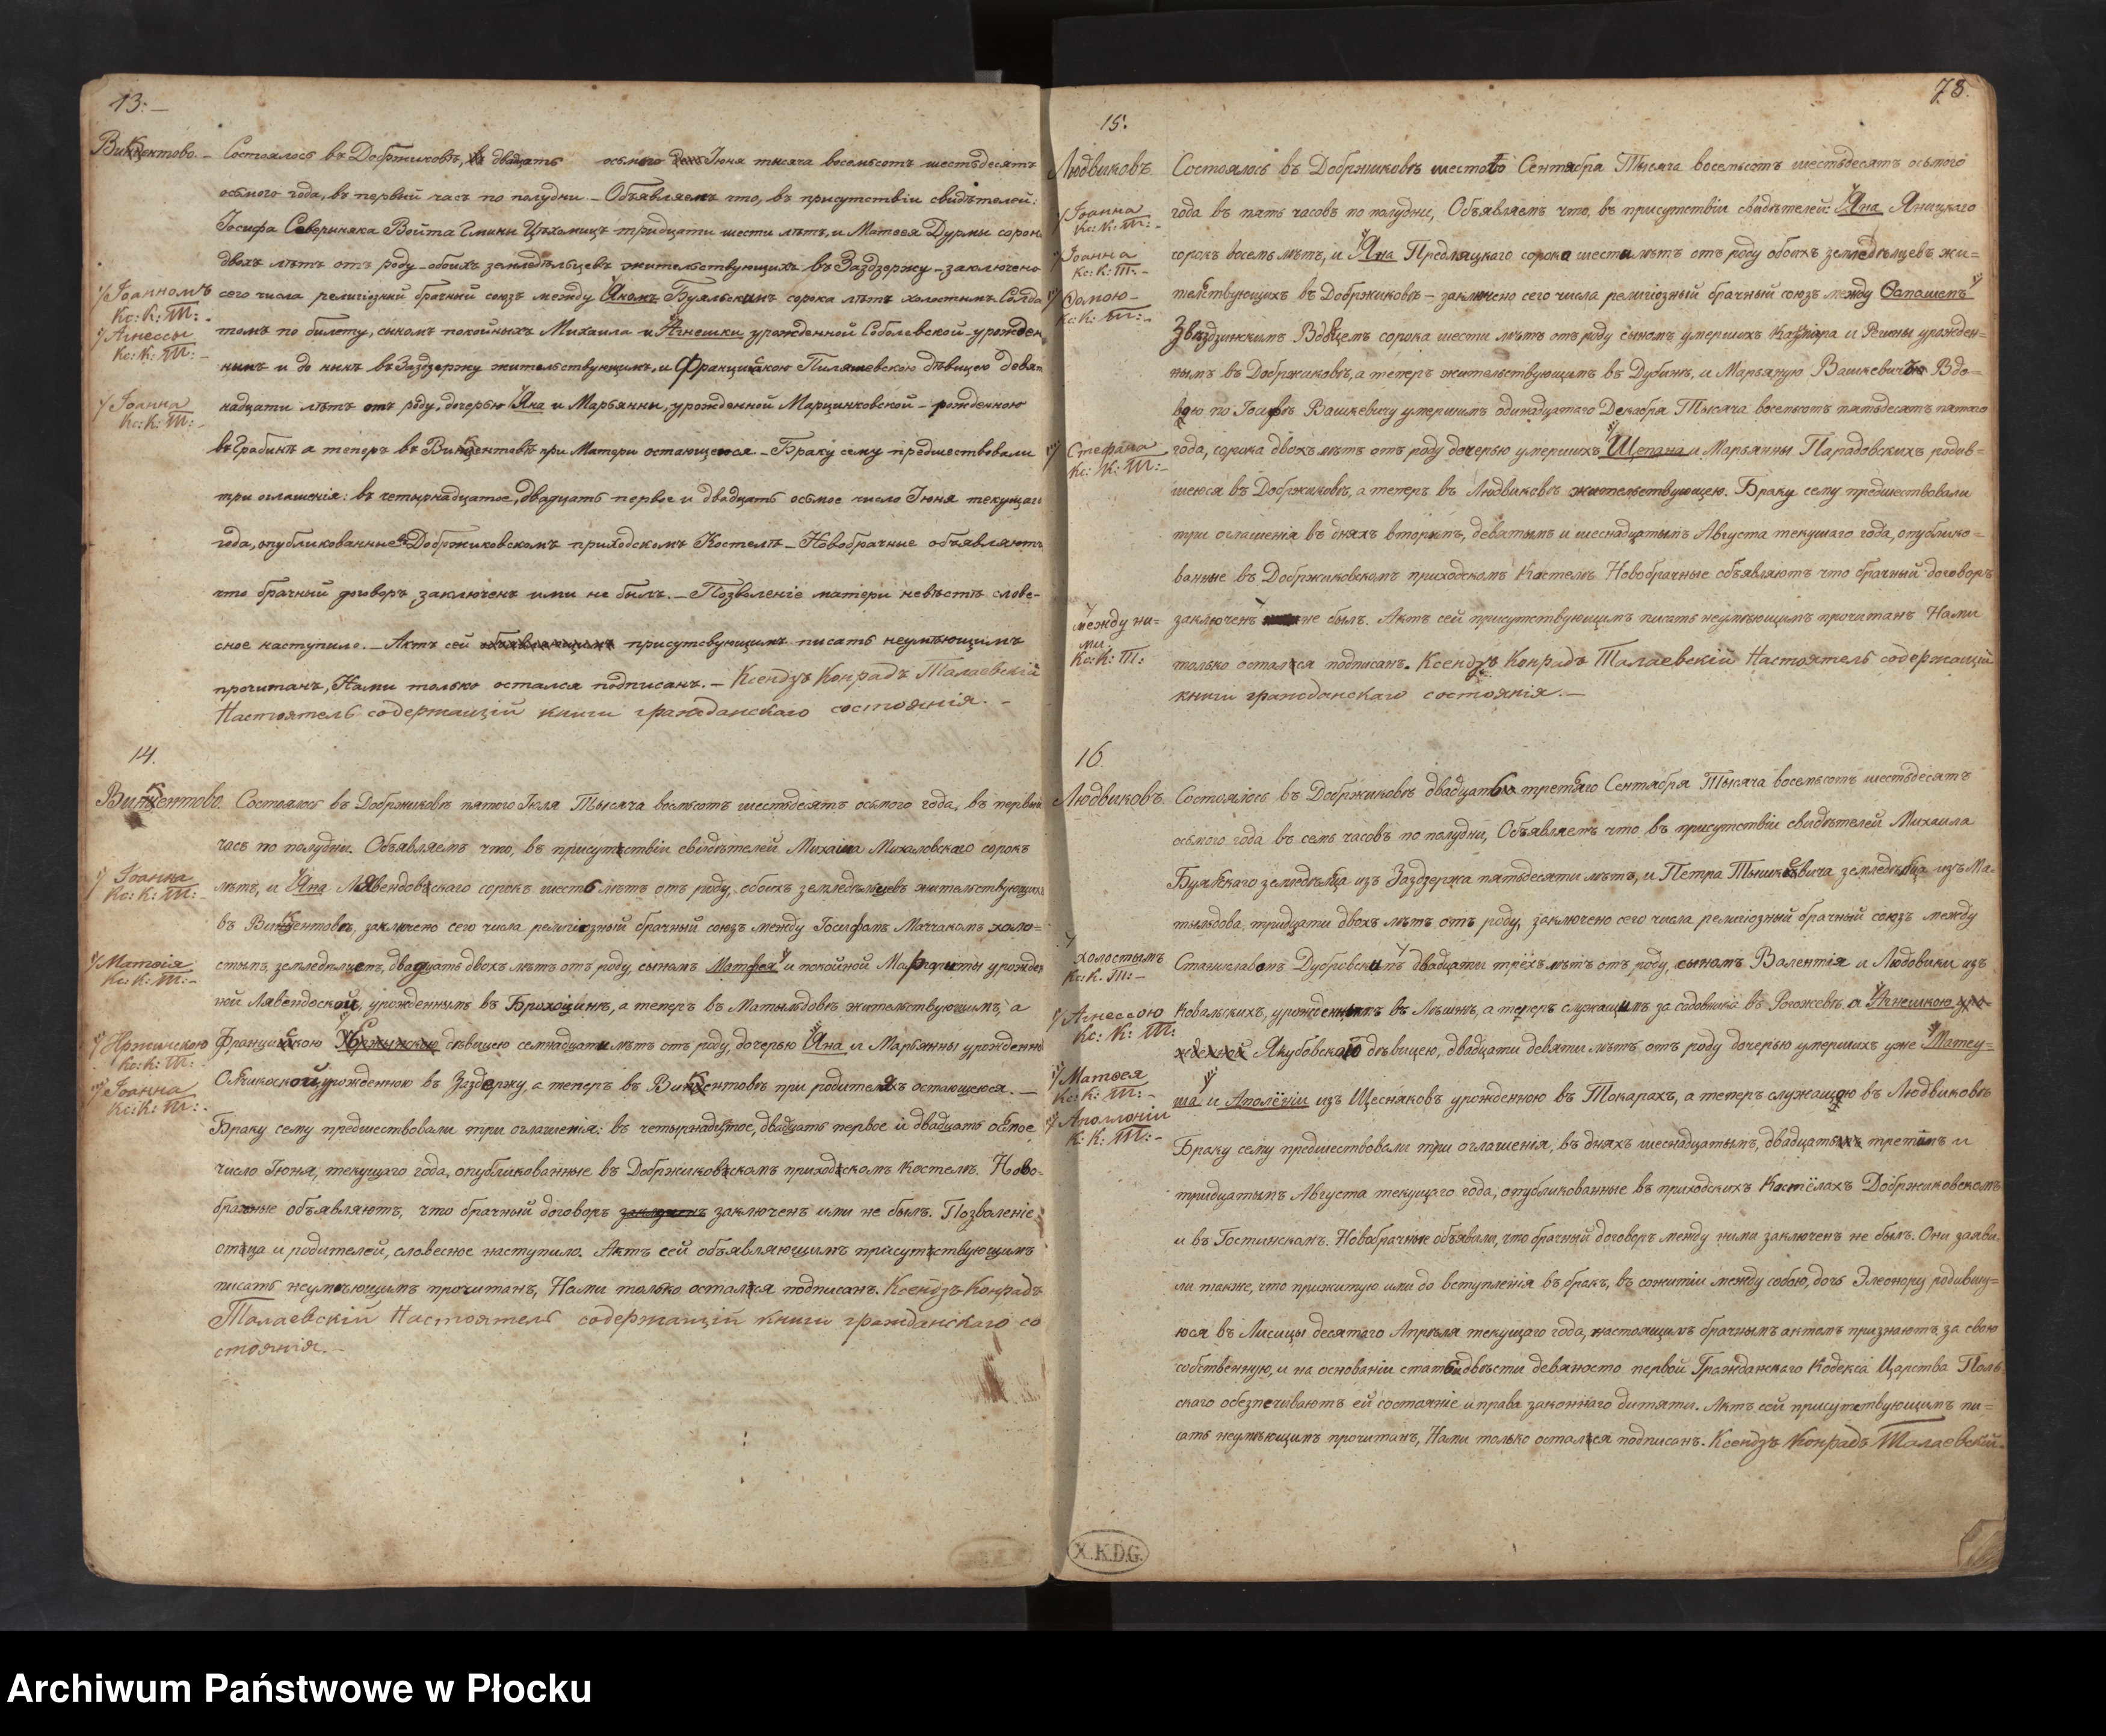 13.
Викентово. Состоялось въ Добржиковѣ, двадцать осьмого Іюня тысяча восемьсотъ шестьдесятъ
осьмого года, въ первый часъ по полудни – Объявляемъ что, въ присутствіи свидѣтелей:
Іосифа Севериняка Войта Гмины тридцати шести лѣтъ, и Матѳея Дурмы сорок
двохъ лѣтъ отъ роду – обоихъ земледѣльцевъ жительствующихъ въ Заздзержу – заключено
Іоанномъ
Кс: К: Т:
сего числа религіозный брачный союзъ между Яномъ Буяльскимъ сорока лѣтъ холостымъ Солда
Агнессы
Кс: К: Т: –
томъ по билету, сыномъ покойныхъ Михаила и Агнешки урожденной Соболевской – урожден
нымъ и до нынѣ въ Заздзержу жительствующимъ, и Францишкою Пиляшевскою дѣвицею девят
Іоанна
Кс: К: Т: –
надцати лѣтъ отъ роду, дочерью Яна и Марьянны, урожденной Марцинковской – рожденною
въ Грабинѣ а теперъ въ Викентовѣ при Матери остающеюся – Браку сему предшествовали
три оглашенія: въ четырнадцатое, двадцать первое и двадцать осьмое число Іюня текущаго
года, опубликованные въ Добржиковскомъ приходскомъ Костелѣ – Новобрачные объявляютъ
что брачный договоръ заключенъ ими не былъ. – Позволеніе матери невѣстѣ слове-
сное наступило. – Актъ сей объявляющимъ присутсвующимъ писать неумѣющимъ
прочитанъ, Нами только остался подписанъ. – Ксендзъ Конрадъ Талаевскій
Настоятель содержащій книги гражданскаго состоянія. –
14.
Викентово. Состоялось въ Добржиковѣ пятого Іюля Тысяча восемьсотъ шестьдесятъ осьмого года, въ первый
часъ по полудни. Объявляемъ что, въ присутствіи свидѣтелей Михаила Михаловскаго сорокъ
Іоанна
Кс: К: Т: –
лѣтъ, и Яна Лявендовскаго сорокъ шесть лѣтъ отъ роду, обоихъ земледѣльцевъ жительствующихъ
въ Викентовѣ, заключено сего числа религіозный брачный союзъ между Іосифомъ Матчакомъ холо=
Матѳія
Кс: К: Т: –
стымъ, земледѣльцемъ, двадцать двохъ лѣтъ отъ роду, сыномъ Матѳея и покойной Маргариты урожден
ной Лявендоской, урожденнымъ въ Брохоцинѣ, а теперъ въ Матыльдовѣ жительствующимъ, а
Кс: К: Т:
Францишкою дѣвицею семнадцати лѣтъ отъ роду, дочерью Яна и Марьянны урожденно
Іоанна
Кс: К: Т: –
урожденною въ Заздержу, а теперъ въ Викентовѣ при родителяхъ остающеюся. –
Браку сему предшествовали три оглашенія: въ четырнадцтое, двадцать первое и двадцать осьмое
число Іюня, текущаго года, опубликованные въ Добржиковскомъ приходскомъ костелѣ. Ново-
брачные объявляютъ, что брачный договоръ заключенъ заключенъ ими не былъ. Позволеніе
отца и родителей, словесное наступило. Актъ сей объявляющимъ присутствующимъ
писать неумѣющимъ прочитанъ, Нами только остался подписанъ. Ксендзъ Конрадъ
Талаевскій Настоятель содержащій книги гражданскаго со
стоянія. –
78.
15.
Людвиковъ. Состоялось въ Добржиковѣ шестого Сентября Тысяча восемьсотъ шестьдесятъ осьмого
Іоанна
Кс: К: Т: –
года въ пять часовъ по полудни, Объявляемъ что, въ присутствіи свидѣтелей: Яна Яницкаго
Іоанна
Кс: К: Т: –
сорокъ восемь лѣтъ, и Яна Предляцкаго сорока шести лѣтъ отъ роду обоихъ земледѣлцевъ жи=
Ѳомою –
Кс: К: Т: –
телствующихъ въ Добржиковѣ – заключено сего числа религіозный брачный союзъ между
Звѣздзинскимъ Вдовцемъ сорока шести лѣтъ отъ роду сыномъ умершихъ и Регины урожден=
нымъ въ Добржиковѣ, а теперъ жительствующимъ въ Дубинѣ, и Марьяную Вашкевичъ Вдо=
вою по Іосифѣ Вашкевичу умершимъ одинадцатаго Декабря Тысяча восемьсотъ пятьдесятъ пятаго
Стефана
Кс: К: Т: –
года, сорока двохъ лѣтъ отъ роду дочерью умершихъ Щепана и Марьянны Парадовскихъ родив=
шеюся въ Добржиковѣ, а теперъ въ Людвиковѣ жительствующею. Браку сему предшествовали
три оглашенія въ дняхъ вторымъ, девятымъ и шеснадцатымъ Августа текущаго года, опублико=
ванные въ Добржиковскомъ приходскомъ Костелѣ. Новобрачные объявляютъ что брачный договоръ
между ни=
ми
Кс: К: Т:
заключенъ не былъ. Актъ сей присутствующимъ писать неумѣющимъ прочитанъ Нами
только остался подписанъ. Ксендзъ Конрадъ Талаевскій Настоятель содержащій
книги гражданскаго состоянія. –
16.
Людвиковъ. Состоялось въ Добржиковѣ двадцать третьяго Сентября Тысяча восемьсотъ шестьдесятъ
осьмого года въ семь часовъ по полудни, Объявляемъ что въ присутствіи свидѣтелей Михаила
земледѣльца изъ Заздзержа пятьдесяти лѣтъ, и Петра Тышкевича земледѣльца изъ Ма-
тыльдова, тридцати двохъ лѣтъ отъ роду, заключено сего числа религіозный брачный союзъ между
холостымъ
Кс: К. Т: –
Станиславомъ Дубровскимъ двадцати трёхъ лѣтъ отъ роду, сыномъ Валентія и Людовики изъ
Агнессою
Кс: К: Т:
Ковальскихъ, урожденнымъ въ а теперъ служащимъ за садовника въ Рогожевѣ, а Агнешкою уро-
жденной Якубовскою дѣвицею, двадцати девяти лѣтъ отъ роду дочерью умершихъ уже Матеу=
Матѳея
Кс: К: Т: –
ша и Аполёніи изъ Щесняковъ урожденною въ Токарахъ, а теперъ служащою въ Людвиковѣ
Аполлоніи
К: К: Т: –
Браку сему предшествовали три оглашенія, въ дняхъ шеснадцатымъ, двадцать третимъ и
тридцатымъ Августа текущаго года, опубликованные въ приходскихъ Костёлахъ Добржиковскомъ
и въ Гостинскомъ. Новобрачные объявили, что брачный договоръ между ними заключенъ не былъ. Они заяви-
ли также, что прижитую ими до вступленія въ бракъ, въ сожитіи между собою, дочь Элеонору родившу=
юся въ Лисицы десятого Апрѣля текущаго года, настоящимъ брачнымъ актомъ признаютъ за свою
собственную, и на основаніи статьи двѣсти девяносто первой Гражданскаго Кодекса Царства Поль-
скаго обезпечиваютъ ей состояніе и права законнаго дитяти. Актъ сей присутствующимъ пи=
сать неумѣющимъ прочитанъ, Нами только остался подписанъ. Ксендзъ Конрадъ Талаевскій.
X.K.D.G.
Archiwum Państwowe w Płocku